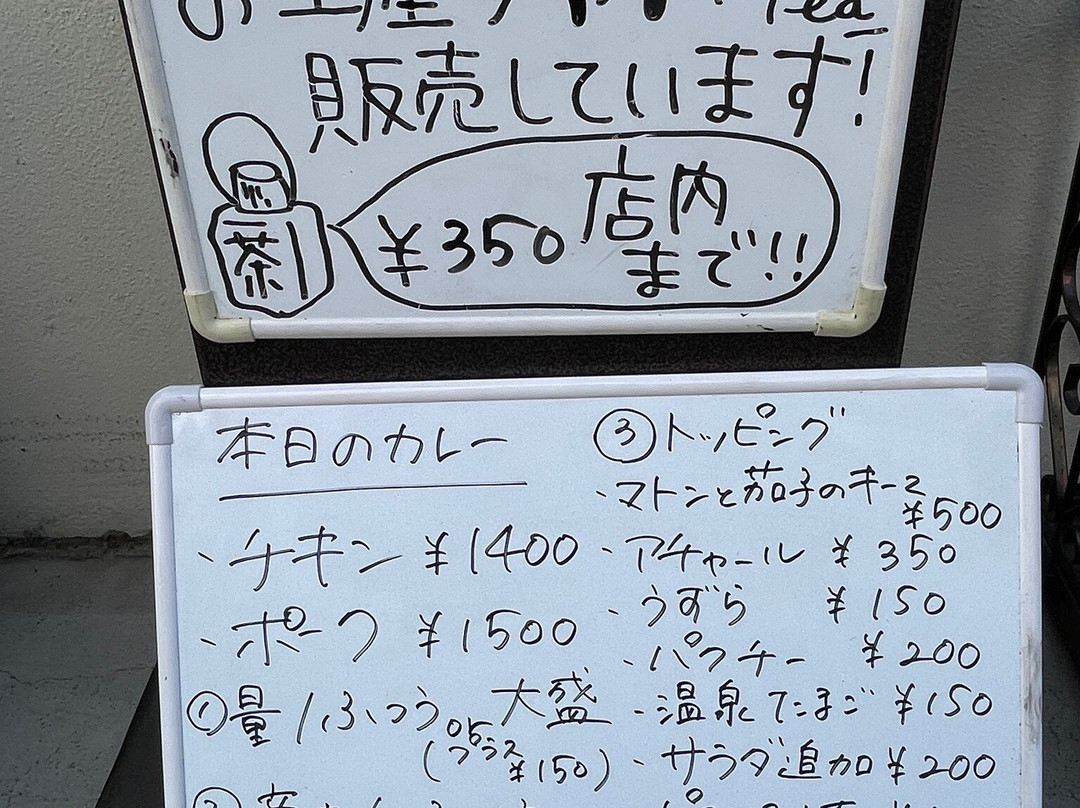 お土産 Tea
販売しています!
茶
¥350 店内
まで!!
本日のカレー
・チキン ¥1400
・ポーク ¥1500
①量/ふつう or 大盛
(プラス
¥150)
③トッピング
・マトンと茄子のキーマ
¥500
・アチャール ¥350
・うずら ¥150
・パクチー ¥200
・温泉たまご ¥150
・サラダ追加 ¥200